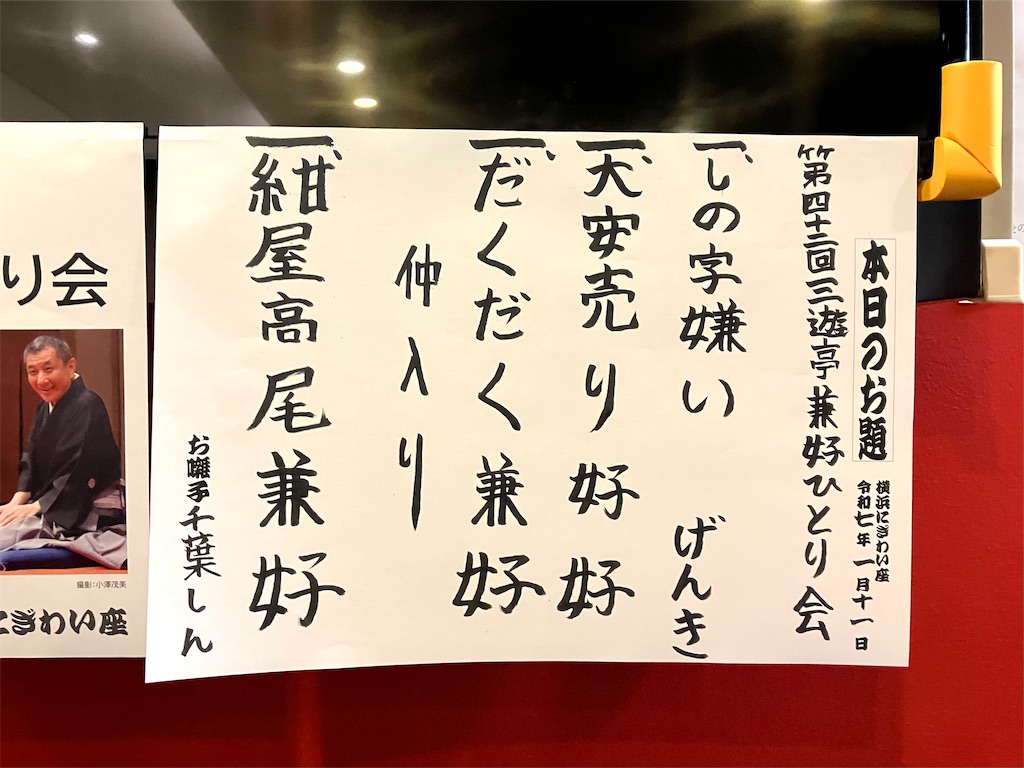 本日のお題
横浜にぎわい座
令和七年 一月十一日
第四十二回三遊亭兼好ひとり会
一、しの字嫌い げんき
一、大安売り 好好
一、だくだく 兼好
仲入り
一、紺屋高尾 兼好
お囃子 千葉しん
り会
撮影:小澤茂美
にぎわい座